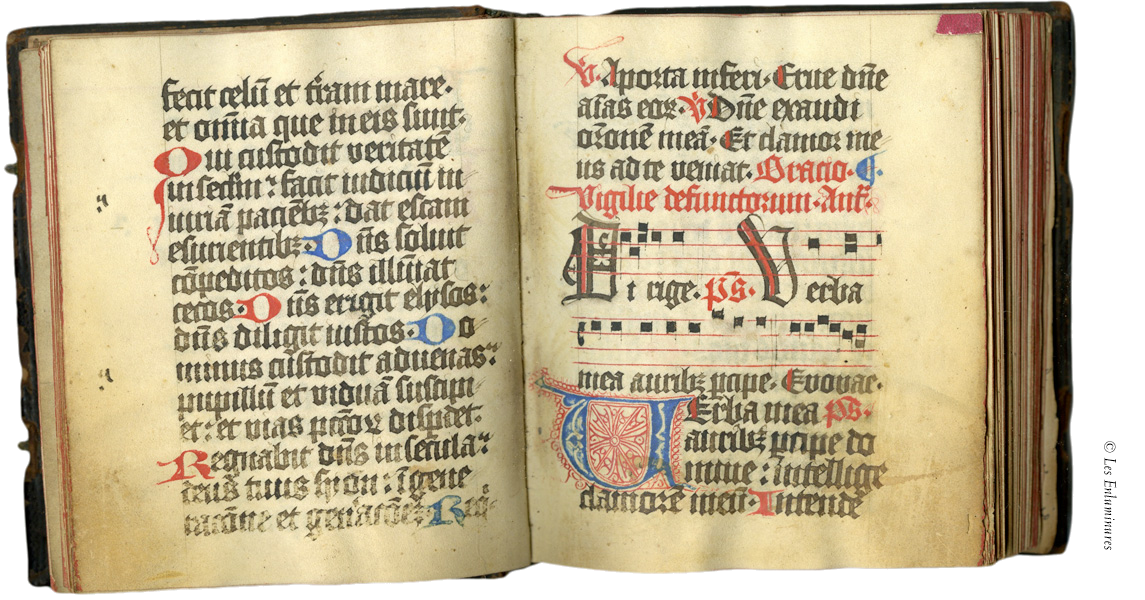 fecit celū et t̄ram mare·
et om̄ia que in eis sunt·
Qui custodit veritatē
in seclm̄ : facit iudiciū in
iuriā pacientibꝫ : dat escam
esurientibꝫ· Dn̄s soluit
cōpeditos : dn̄s illūiat
cecos· Dn̄s erigit elysos :
dn̄s diligit iustos· Do
minus custodit aduenas :
pupillū et viduā suscipi
et : et vias pctōꝝ disꝑdet·
Regnabit dn̄s in secula :
deus tuus syon : ī gene
racōne et
℣· A porta inferi· Erue dn̄e
aīas eoꝝ· ℣ Dn̄e exaudi
orōnē meā· Et clamor me
us ad te veniat· Oracio·
Vigilie defunctorum· Anͣ·
Dirige· p̄s· Verba
mea auribꝫ ꝑcipe· Euouae·
Uerba mea p̄s·
auribꝫ ꝑcipe do
mine : intellige
clamorē meū· Intende
© Les Enluminures